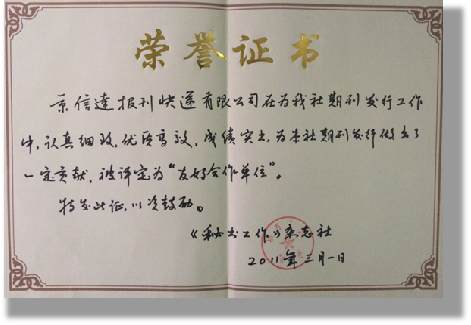 荣誉证书
京信達报刊快递有限公司在为我社期刊发行工作
中,认真细致,优质高效,成绩突出,为本社期刊发行做出了
一定贡献,被评定为“友好合作单位”。
特发此证,以资鼓励。
《秘书工作》杂志社
2011年三月一日